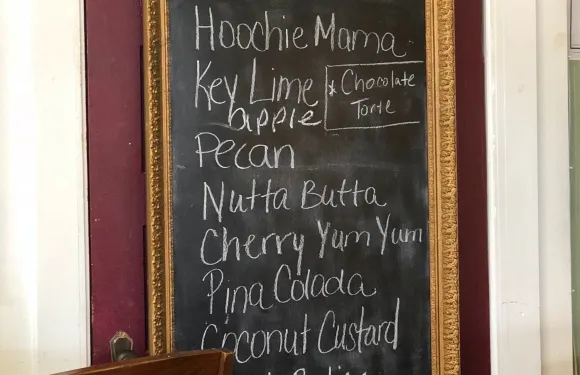 Hoochie Mama
Key Lime
apple
* Chocolate
Torte
Pecan
Nutta Butta
Cherry Yum Yum
Pina Colada
Coconut Custard